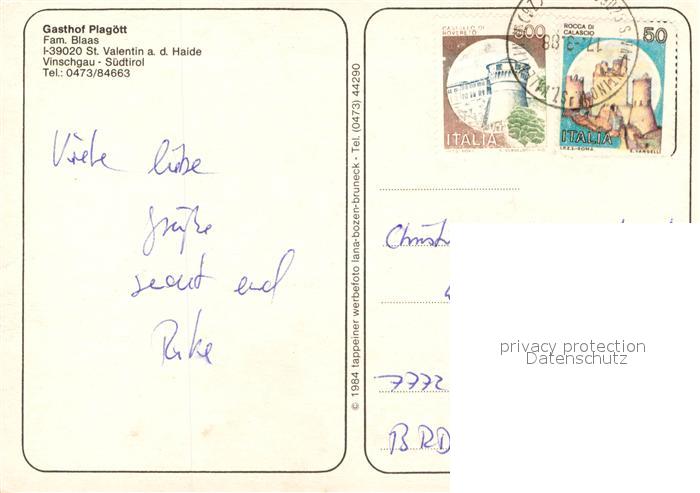 Gasthof Plagött
Fam. Blaas
I-39020 St. Valentin a. d. Haide
Vinschgau - Südtirol
Tel.: 0473/84663
Viele liebe
Grüße
sendet euch
Rike
© 1984 tappeiner werbefoto lana-bozen-bruneck - Tel. (0473) 44290
CASTELLO DI
ROVERETO
500
ITALIA
ROCCA DI
CALASCIO
50
ITALIA
I.P.Z.S.-ROMA
E. VANGELLI
Christ
7772
BRD
privacy protection
Datenschutz